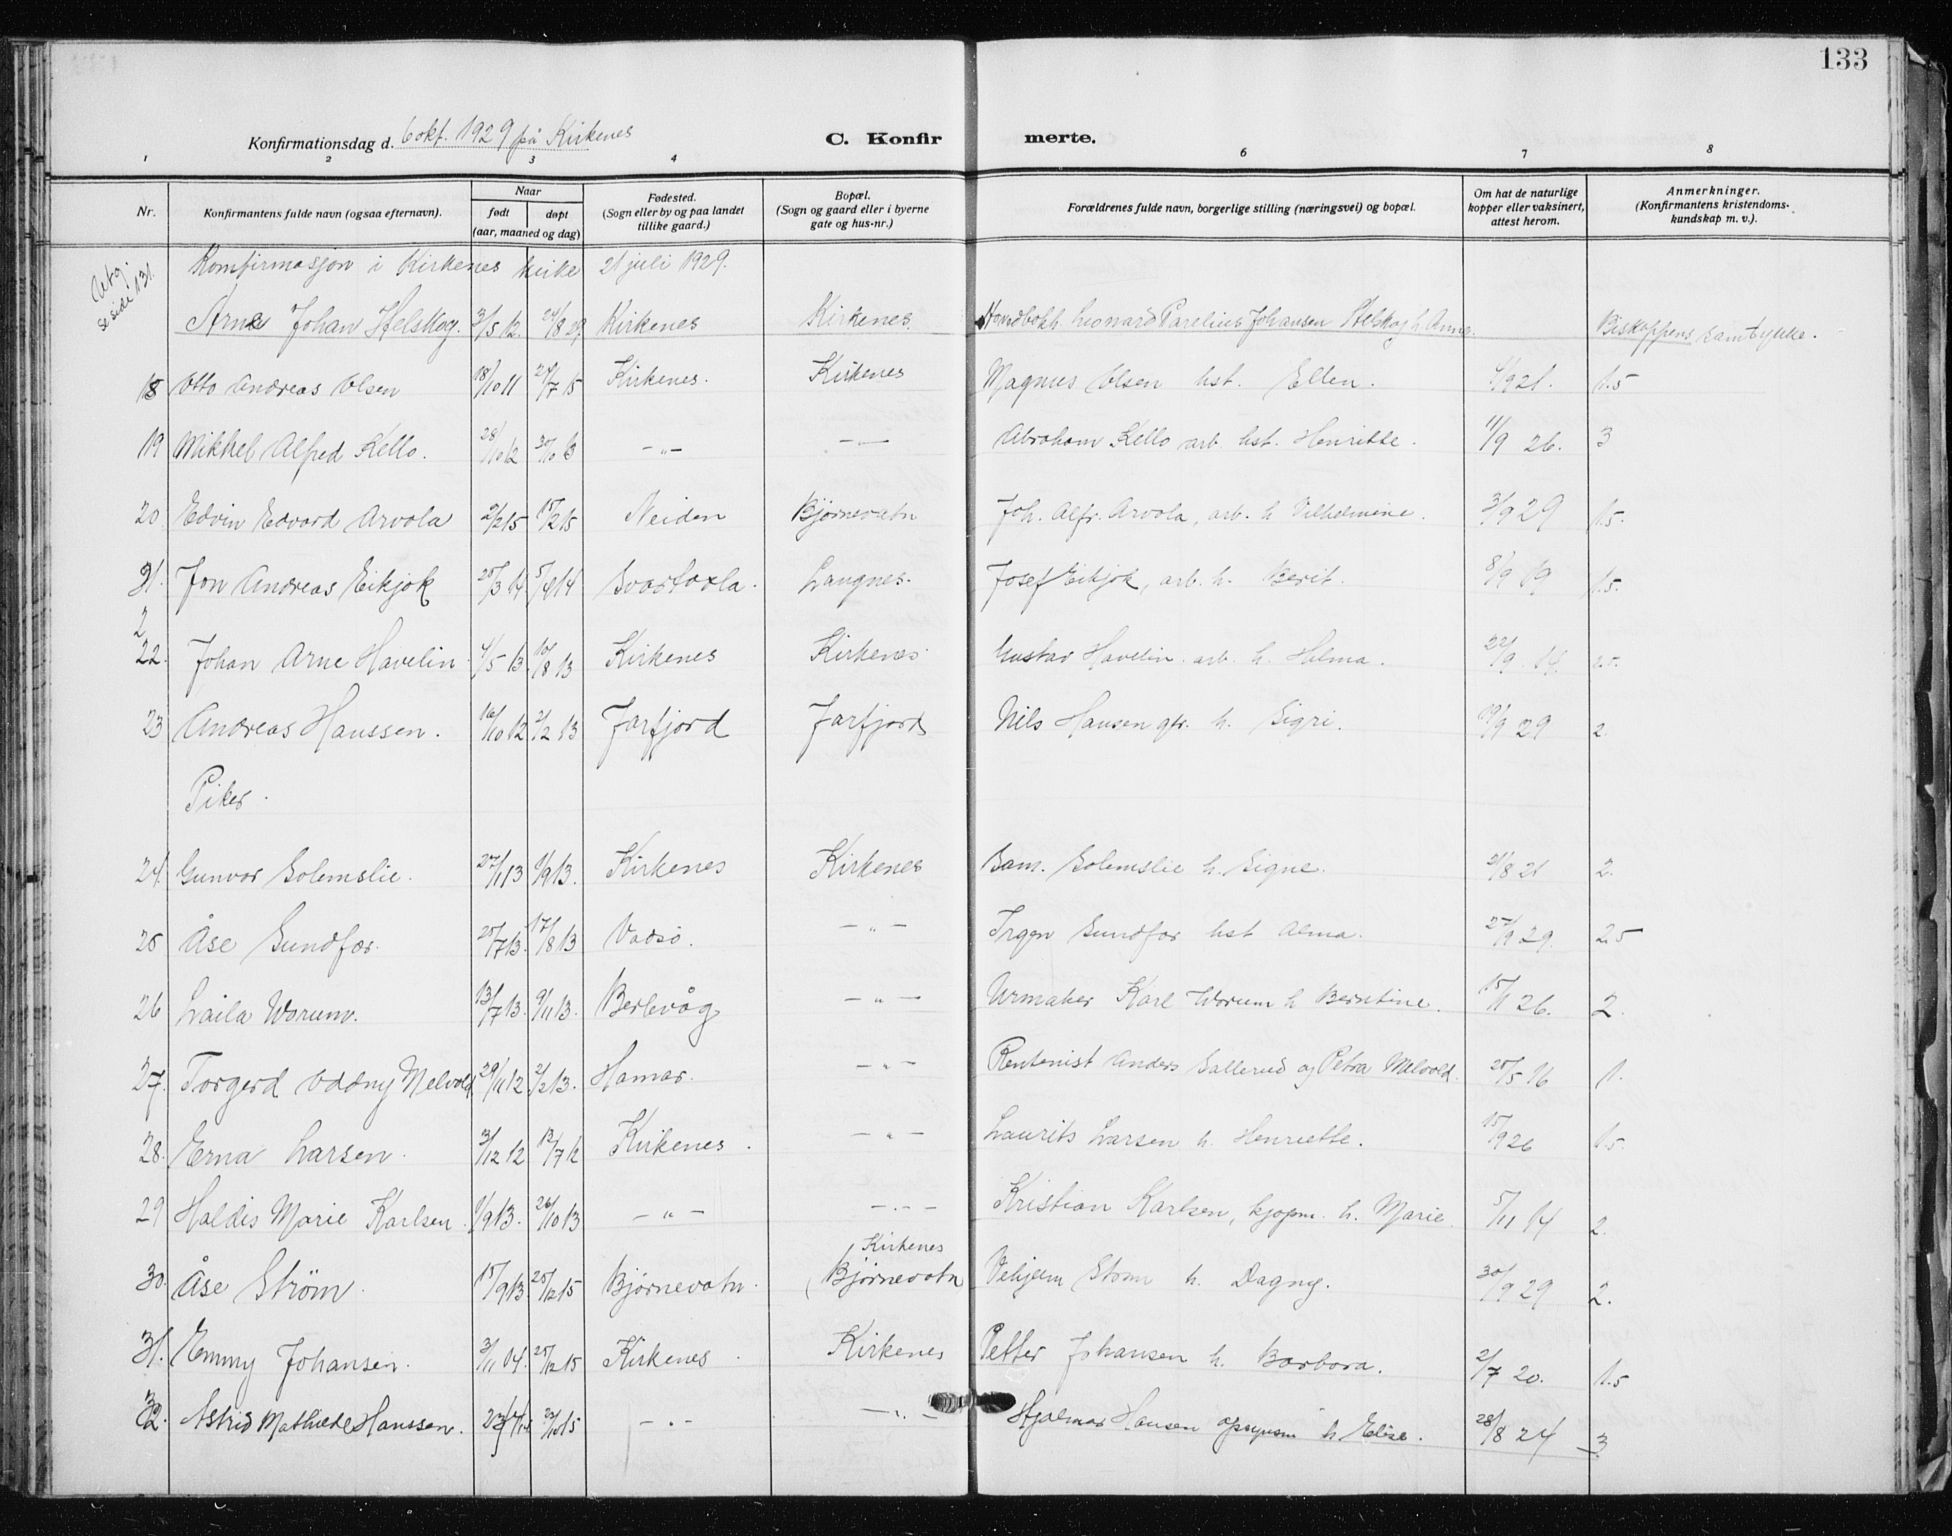 133
Konfirmationsdag d. 6 okt. 1929 på Kirkenes C. Konfirmerte.
1 2 3 4 6 7 8
Nr. Konfirmantens fulde navn (ogsaa efternavn). Naar født døpt (aar, maaned og dag) Fødested. (Sogn eller by og paa landet tillike gaard.) Bopæl. (Sogn og gaard eller i byerne gate og hus-nr.) Forældrenes fulde navn, borgerlige stilling (næringsvei) og bopæl. Om hat de naturlige kopper eller vaksinert, attest herom. Anmerkninger. (Konfirmantens kristendomskundskap m. v.).
se side 131. Konfirmasjon i Kirkenes kirke 21 juli 1929.
Arne Johan Stelskog. 3/5 12. 24/8 29. Kirkenes Kirkenes Leonard Parelius Johansen Stelskog h. Anne. Biskoppens samtykke.
18 Otto Andreas Olsen 18/10 11 24/7 15 Kirkenes. Kirkenes Magnus Olsen hst. Ellen. 4/9 21. 1.5
19 Mikkel Alfred Kello. 28/10 12 30/10 13 -"- -"- Abraham Kello arb. hst. Henriette. 11/9 26. 3
20 Edvin Edvard Arvola 2/2 15 15/2 15 Neiden Bjørnevatn Joh. Alfr. Arvola, arb. h Vilhelmine. 3/9 29 1.5.
21. Jon Andreas Eikjok 25/3 14 5/4 14 Svartaxla. Langnes. Josef Eikjok, arb. h. Berit. 8/9 19 1.5.
22. Johan Arne Havelin 4/5 13. 10/8 13 Kirkenes Kirkenes Gustav Havelin arb. h. Hilma. 22/9 14. 2.5.
23 Andreas Hanssen. 16/10 12 2/2 13 Jarfjord Jarfjord Nils Hansen h. Sigri. 19/9 29 2.
Piker.
24. Gunvor Solemslie. 27/1 13 1/9 13. Kirkenes Kirkenes Sam. Solemslie h. Signe. 21/8 21 2.
25 Åse Sundfær. 25/7 13. 17/8 13 Vadsø. -"- Sundfær hst Alma. 27/9 29. 2.5
26 Laila Worum. 13/7 13. 9/11 13. Berlevåg -"- Urmaker Karl Worum h Berntine. 15/1 26. 2.
27. Torgerd Oddny Melvold 29/11 12. 2/2 13. Hamar. -"- Rentenist Anders Sallerud og Petra Melvold. 25/5 16 1.
28. Erna Larsen. 3/12 12 Kirkenes. -"- Laurits Larsen h. Henriette. 15/9 26 1.5.
29 Haldis Marie Karlsen. 1/9 13. 26/10 13 -"- -"- Kristian Karlsen, kjøpm. h. Marie. 5/11 14 2.
30. Åse Strøm 15/9 13. 25/12 15 Bjørnevatn. Kirkenes (Bjørnevatn) Strøm h. Dagny. 30/9 29 2.
31. Emmy Johansen. 3/11 04. 25/12 15 Kirkenes. Kirkenes Petter Johansen h. Barbara. 2/7 20. 1.5
32. Astrid Mathilde Hanssen. -"- -"- Hjalmar Hansen opsynsm h Elise. 28/8 24 3.